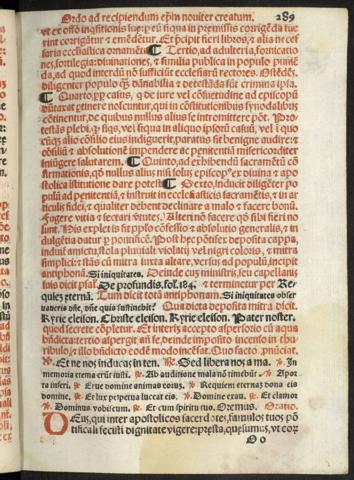 Ordo ad recipiendum epm noviter creatum. 289
ut ex officio inquisitionis sue: ꝑ eū singula in premissis corrigēda tue
rint corrigātur ⁊ emēdētur. Et ꝑcipit fieri libros, ⁊ alia necef
saria ecclasistica ornamēta ¶ Tertio, ad adulteria, fornicatio
nes, sortilegia: diuinationes, ⁊ similia publica in populo puniē
da, ad quod interdū nō sufficiūt ecclesiarū rectores. Ostēdēs
diligenter populo ꝙ dānabilia ⁊ detestāda sūt crimina ipsa.
¶ Quarto, propter casus, q̄ de iure vel cōsuetudine ad episcopū
dūtaxat ptinere noscuntur, qui in cōstitutionibus synodalibus
cōtinentur, de quibus nullus alius se intromittere pōt. Pro-
testās plebi, ꝙ siqs, vel siqua in aliquo ipsorū casuū, vel i quo
cūqz alio cōsilio eius indiguerit, paratus sit benigne audire: ⁊
cōsiliū ⁊ absolutionē impendere ac penitentiā misericorditer
iniūgere salutarem. ¶ Quinto, ad exhibendū sacramētū cō
firmationis, qd nullus alius nisi solus episcopꝰ ex diuina ⁊ apo
stolica īstitutione dare potest ¶ Sexto, inducit diligēter po
pulū ad penitentiā, ⁊ instruit in ecclesiasticis sacramētis, ⁊ in ar
ticulis fidei, ⁊ qualiter debent declinare a malo ⁊ facere bonū.
Fugere vitia ⁊ sectari virtutes. Alteri nō facere qd sibi fieri no
lunt. His explet is fit pplo cōfessio ⁊ absolutio generalis, ⁊ in
dulgētia datur p pontificē. Post hec pōtifex deposita cappa,
induit amictū, stola pluuiali violatij vel nigri coloris, ⁊ mitra
simplici: ⁊ stās cū mitra iuxta altare, versus ad populū incipit
antiphonā. Si iniquitates. Deinde cuz ministris, seu capellanis
suis dicit psal. De profundis. fol. 184. ⁊ terminetur per Re-
quiez eternā. Tum dicit totā antiphonam. Si iniquitates obser
uaueris dn̄e, dn̄e quis sustinebit? Qua dicta deposita mitra dicit.
Kyrie eleison. Christe eleison. Kyrie eleison. Pater noster.
quod secrete cōpletur. Et interīz accepto aspersorio cū aqua
bn̄dicta: tertio aspergit an̄ se, deinde imposito incenso in thu
ribulo: ⁊ illo bn̄dicto eodē modo incēsat. Quo facto, ꝓnūciat.
℣. Et ne nos inducas in ten. ℞. Sed libera nos a ma. ℣. In
memoria eterna erūt iusti. ℞. Ab auditione mala nō timebūt ℣. Apor
ta inferi. ℞. Erue domine animas eoruz. ℣. Requiem eternaz dona eis
domine. ℞. Et lux perpetua luceat eis. ℣. Domine exau. ℞. Et clamor
℣. Dominus vobiscum. ℞. Et cum spiritu tuo. Oremus. Oratio.
Deus, qui inter apostolicos sacerdotes, famulos tuos pō
tificali fecisti dignitate vigere: presta, quesumus, vt eor
O o